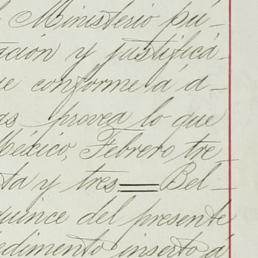 l Ministerio pú-
tación y justificá-
ue conforme á d-
as provea lo que
México, Febrero tre
ta y tres = Bel-
quince del presente
edimento inserto á